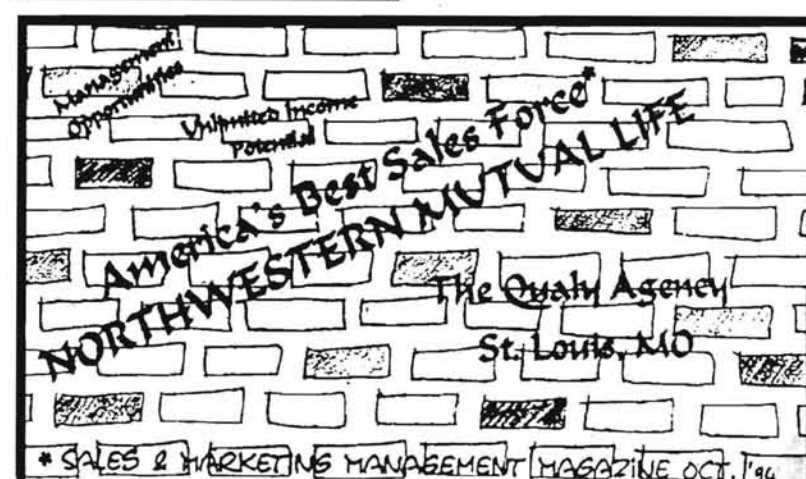 Management
Opportunities
Unlimited Income
Potential
America's Best Sales Force*
NORTHWESTERN MUTUAL LIFE
The Qualy Agency
St. Louis, MO
* SALES & MARKETING MANAGEMENT MAGAZINE OCT. '94